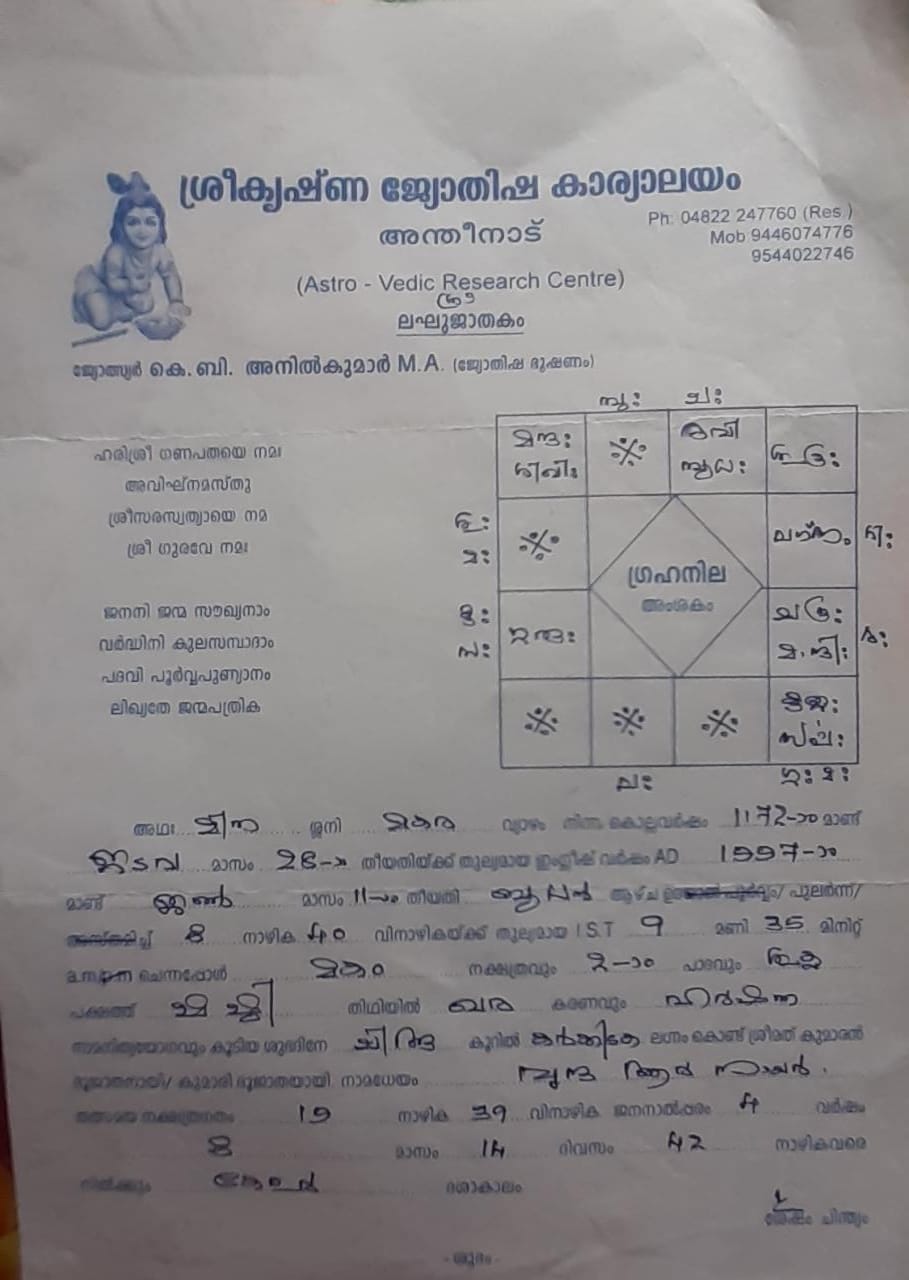 ശ്രീകൃഷ്ണ ജ്യോതിഷ കാര്യാലയം
അന്തീനാട്
Ph: 04822 247760 (Res.)
Mob 9446074776
9544022746
(Astro - Vedic Research Centre)
ശ്രീ
ലഘുജാതകം
ജ്യോത്സ്യർ കെ.ബി. അനിൽകുമാർ M.A. (ജ്യോതിഷ ഭൂഷണം)
ഹരിശ്രീ ഗണപതയെ നമഃ
അവിഘ്നമസ്തു
ശ്രീസരസ്വത്യായെ നമ
ശ്രീ ഗുരവേ നമഃ
ജനനി ജന്മ സൗഖ്യനാം
വർദ്ധിനി കുലസമ്പദാം
പദവി പൂർവ്വപുണ്യാനം
ലിഖ്യതേ ജന്മപത്രിക
മന്ദഃ
ശിഖിഃ
രവി
ബുധഃ
ലഗ്നം
ഗ്രഹനില
അംശകം
ഗുരുഃ
ചന്ദ്രഃ
മാന്ദിഃ
കുജഃ
സർപ്പഃ
ലഃ
അഥഃ മീന ശ്ശനി മകര വ്യാഴം നിന്ന കൊല്ലവർഷം 1172-ാം മാണ്ട്
ഇടവ മാസം 28-ാം തീയതിയ്ക്ക് തുല്യമായ ഇംഗ്ലീഷ് വർഷം AD 1997-ാം
മാണ്ട് ജൂൺ മാസം 11-ാം തീയതി ബുധൻ ആഴ്ച പുലർന്ന്/
8 നാഴിക 40 വിനാഴികയ്ക്ക് തുല്യമായ I.S.T 9 മണി 35 മിനിറ്റ്
ചെന്നപ്പോൾ മകം നക്ഷത്രവും 2-ാം പാദവും
പക്ഷത്ത് ഷഷ്ഠി തിഥിയിൽ ഖര കരണവും ഹർഷണ
നാമനിത്യയോഗവും കൂടിയ ശുഭദിനേ ചിങ്ങ കൂറിൽ കർക്കിടക ലഗ്നം കൊണ്ട് ശ്രീമത് കുമാരൻ
ഭൂജാതനായി/ കുമാരി ഭൂജാതയായി നാമധേയം
തത്സമയ നക്ഷത്രഗതം 19 നാഴിക 39 വിനാഴിക ജനനാൽപ്പരം 4 വർഷം
8 മാസം 14 ദിവസം 42 നാഴികവരെ
നിൽക്കും കേതുർ ദശാകാലം
ശേഷം ചിന്ത്യം
- ശുഭം -